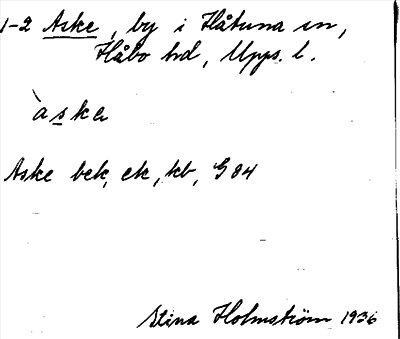 1-2 Aske, by i Håtuna sn,
Håbo hd, Upps. l.
àska
Aske bek, ek, kb, G 84
Stina Holmström 1936